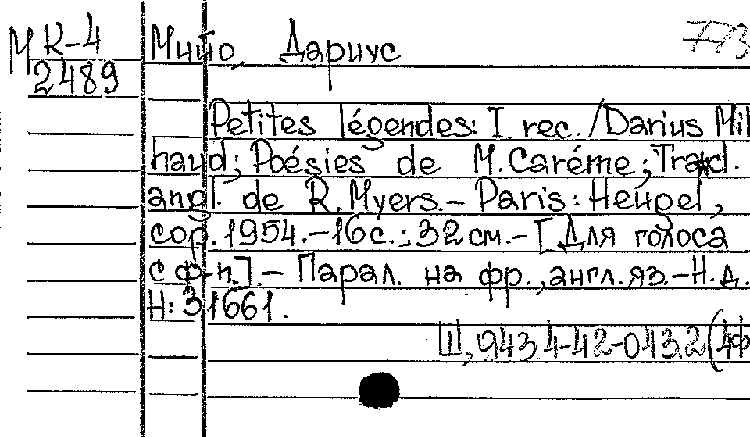 М К-4 Мийо, Дариус 773
2489
Petites légendes: I rec. / Darius Mil
haud; Poésies de M. Caréme; Trad.
angl. de R. Myers. – Paris: Heugel,
cop. 1954. – 16 с.; 32 см. – [Для голоса
с ф-п.]. – Парал. на фр., англ. яз. – Н. д.
Н: 31661.
Щ, 943 4-42-043.2(4Ф